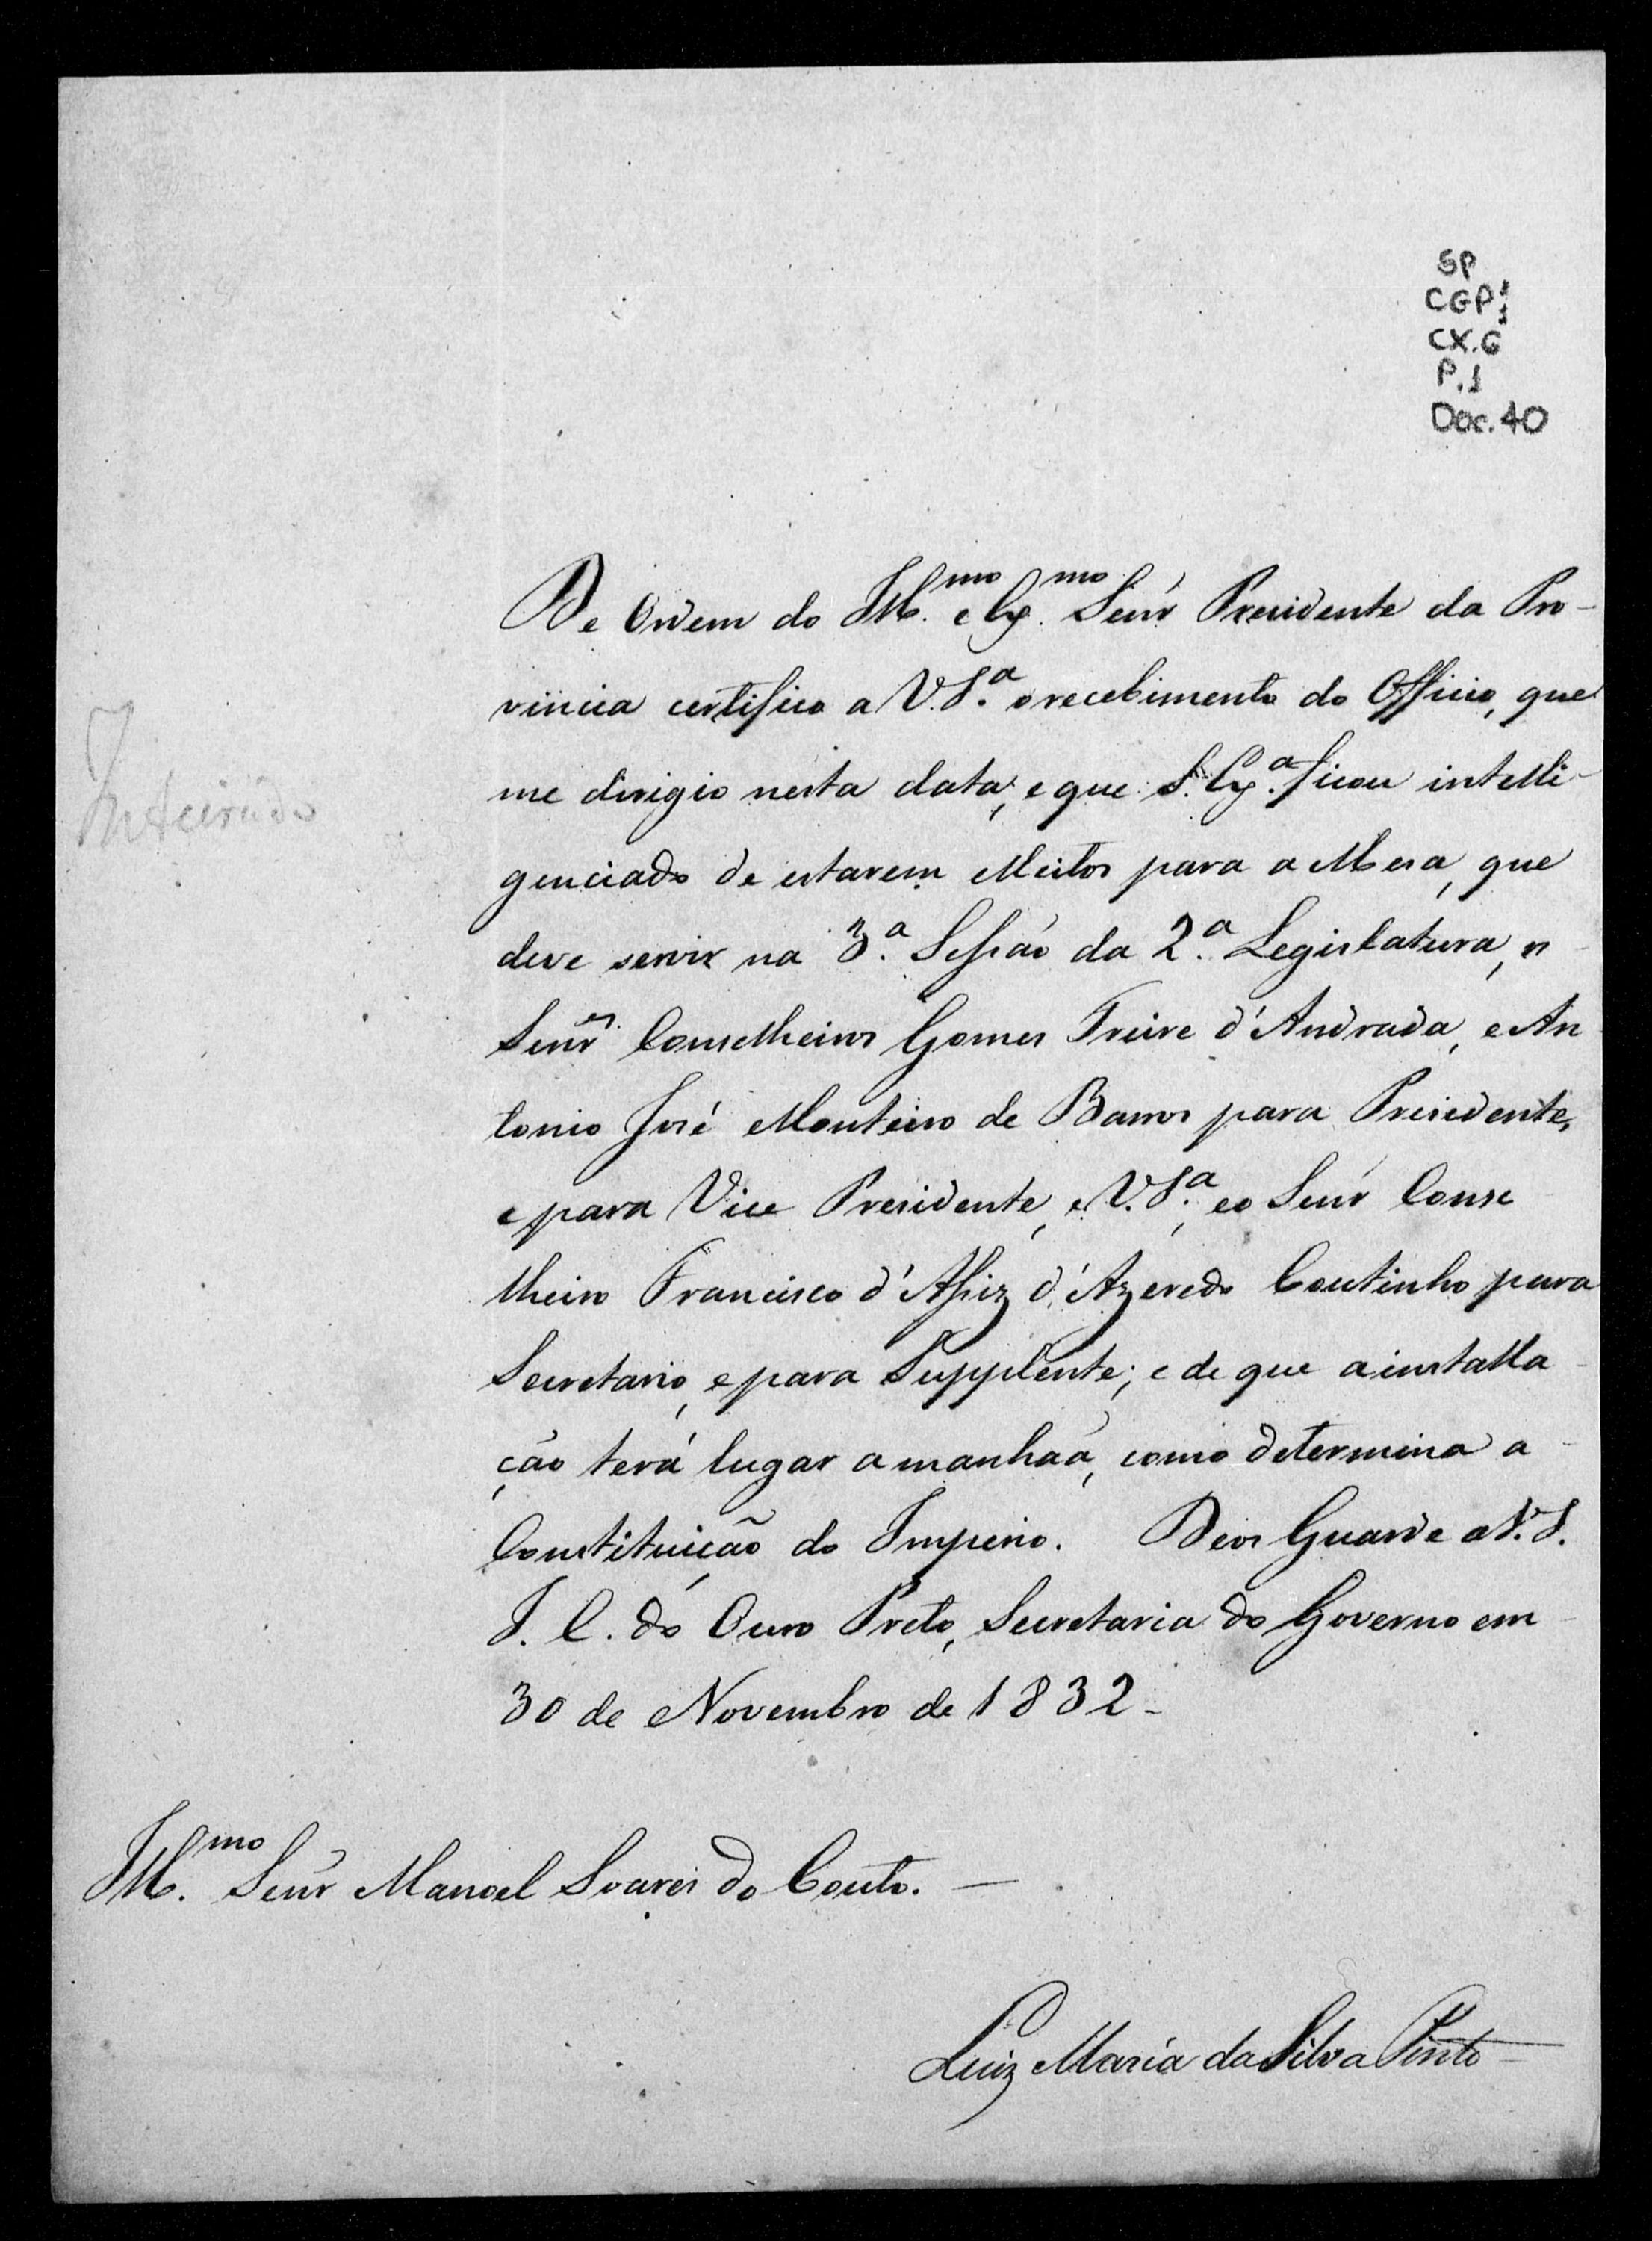 SP
CGP¹₁
CX.6
P.1
Doc. 40
De Ordem do Ill.mo e Ex.mo Senr' Presidente da Pro-
vincia certifico a V.S.a o recebimento do Officio, que
me dirigio nesta data, e que S. Ex.a ficou intelli-
genciado de estarem eleitos para a Mesa, que
deve servir na 3.a Sessão da 2.a Legislatura, os
Senr.es Conselheiros Gomes Freire d'Andrada, e An
tonio José Monteiro de Barros para Presidente,
e para Vice Presidente, e V.S.a, e o Senr' Conse
lheiro Francisco d'Assiz d'Azeredo Coutinho para
Secretario, e para Supplente; e de que a installa-
ção terá lugar amanhaã, como determina a
Constituição do Imperio. Deos Guarde a V.S.
I. C. do Ouro Preto, Secretaria do Governo em
30 de Novembro de 1832-
Inteirado
Ill.mo Senr' Manoel Soares do Couto. —
Luiz Maria da Silva Pinto